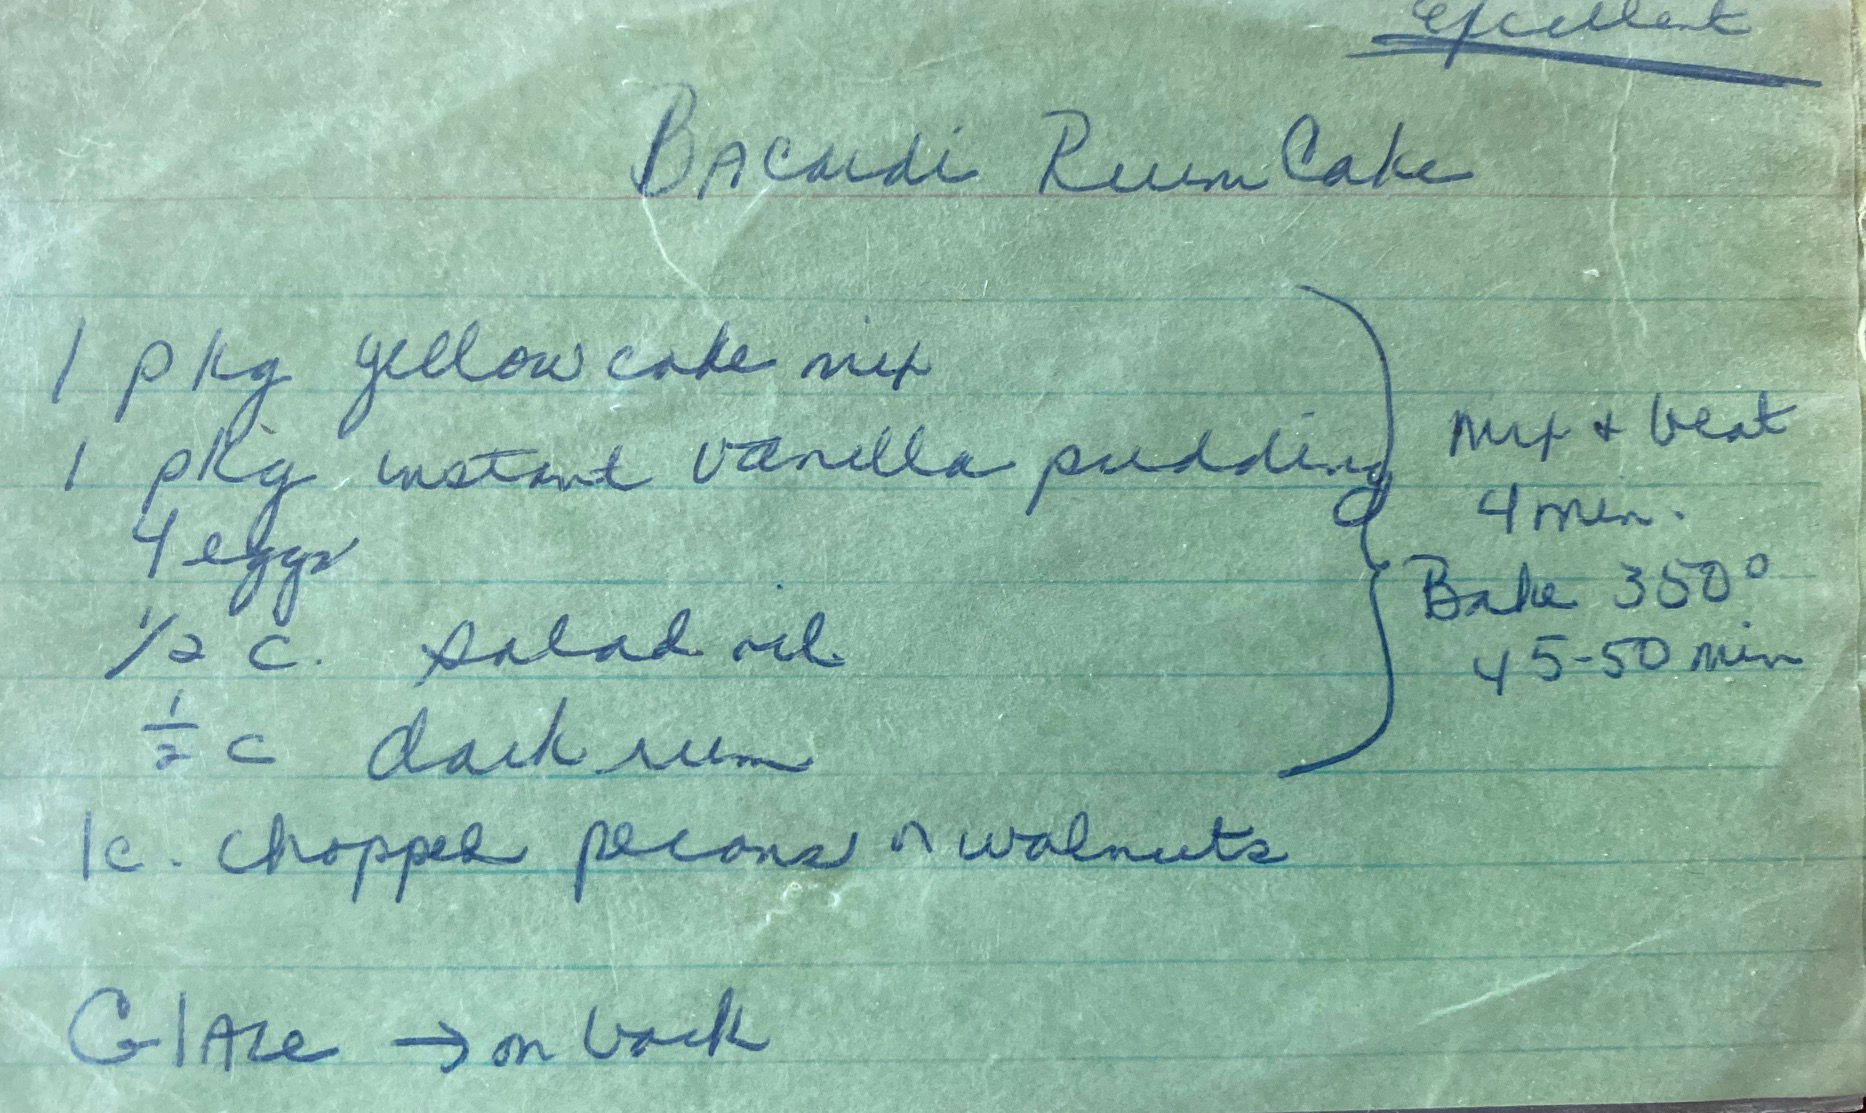 Excellent
BACardi Rum Cake
1 pkg yellow cake mix
1 pkg instant vanilla pudding
4 eggs
1/2 c. salad oil
1/2 c dark rum
mix + beat
4 min.
Bake 350°
45-50 min
1c. chopped pecans or walnuts
GlAze → on back